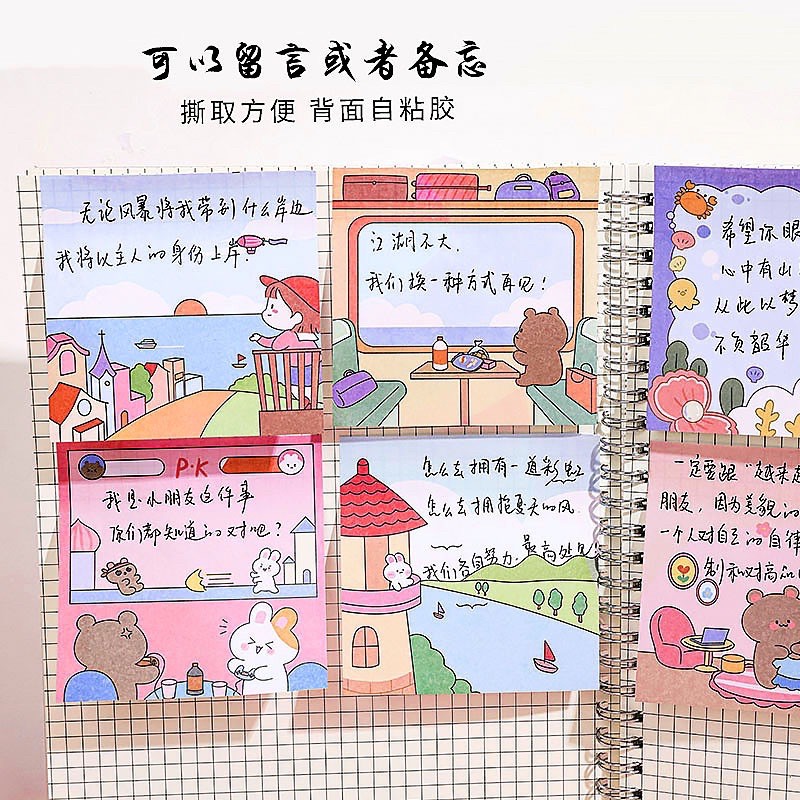 可以留言或者备忘
撕取方便 背面自粘胶
无论风暴将我带到什么岸边
我将以主人的身份上岸.
江湖不大.
我们换一种方式再见!
希望你眼
心中有山
从此以梦
不负韶华
P·K
我是小朋友这件事
你们都知道的对吧?
怎么去拥有一道彩虹
怎么去拥抱夏天的风.
我们各自努力.最高处见
一定要跟"越来越
朋友, 因为美貌的
一个人对自己的自律
制和对高